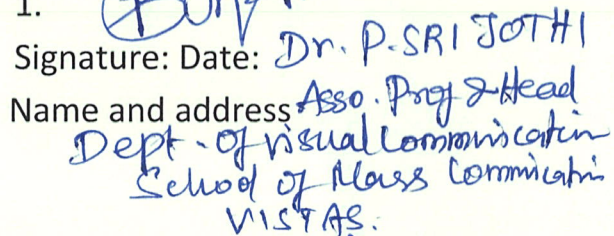 1.
Signature: Date: Dr. P. SRI JOTHI
Name and address Asso. Prof & Head
Dept. of visual Commniscation
School of Mass Commicatin
VISTAS.